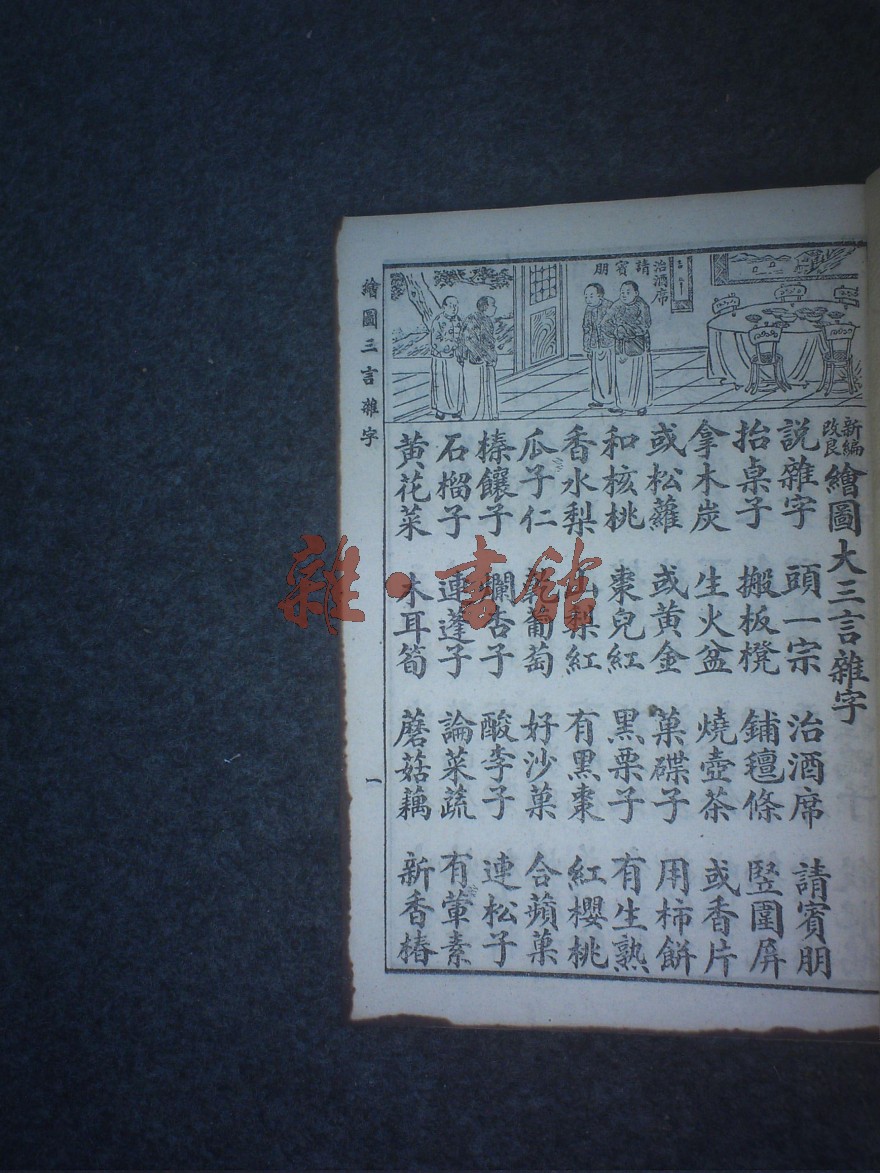 治酒席
請賓朋
新編
改良
繪圖大三言雜字
說雜字 頭一宗 治酒席 請賓朋
抬桌子 搬板櫈 鋪氊條 竪圍屏
拿木炭 生火盆 燒壺茶 或香片
或松蘿 或黃金 菓碟子 用柿餅
和核桃 棗兒紅 黑栗子 有生熟
香水梨 梨紅 有黑棗 紅櫻桃
瓜子仁 葡萄 好沙菓 合蘋菓
榛饟子 杏子 酸李子 連松子
石榴子 連蓬子 論菜蔬 有葷素
黃花菜 木耳筍 蘑菇藕 新香椿
繪圖三言雜字
一
雜·書館